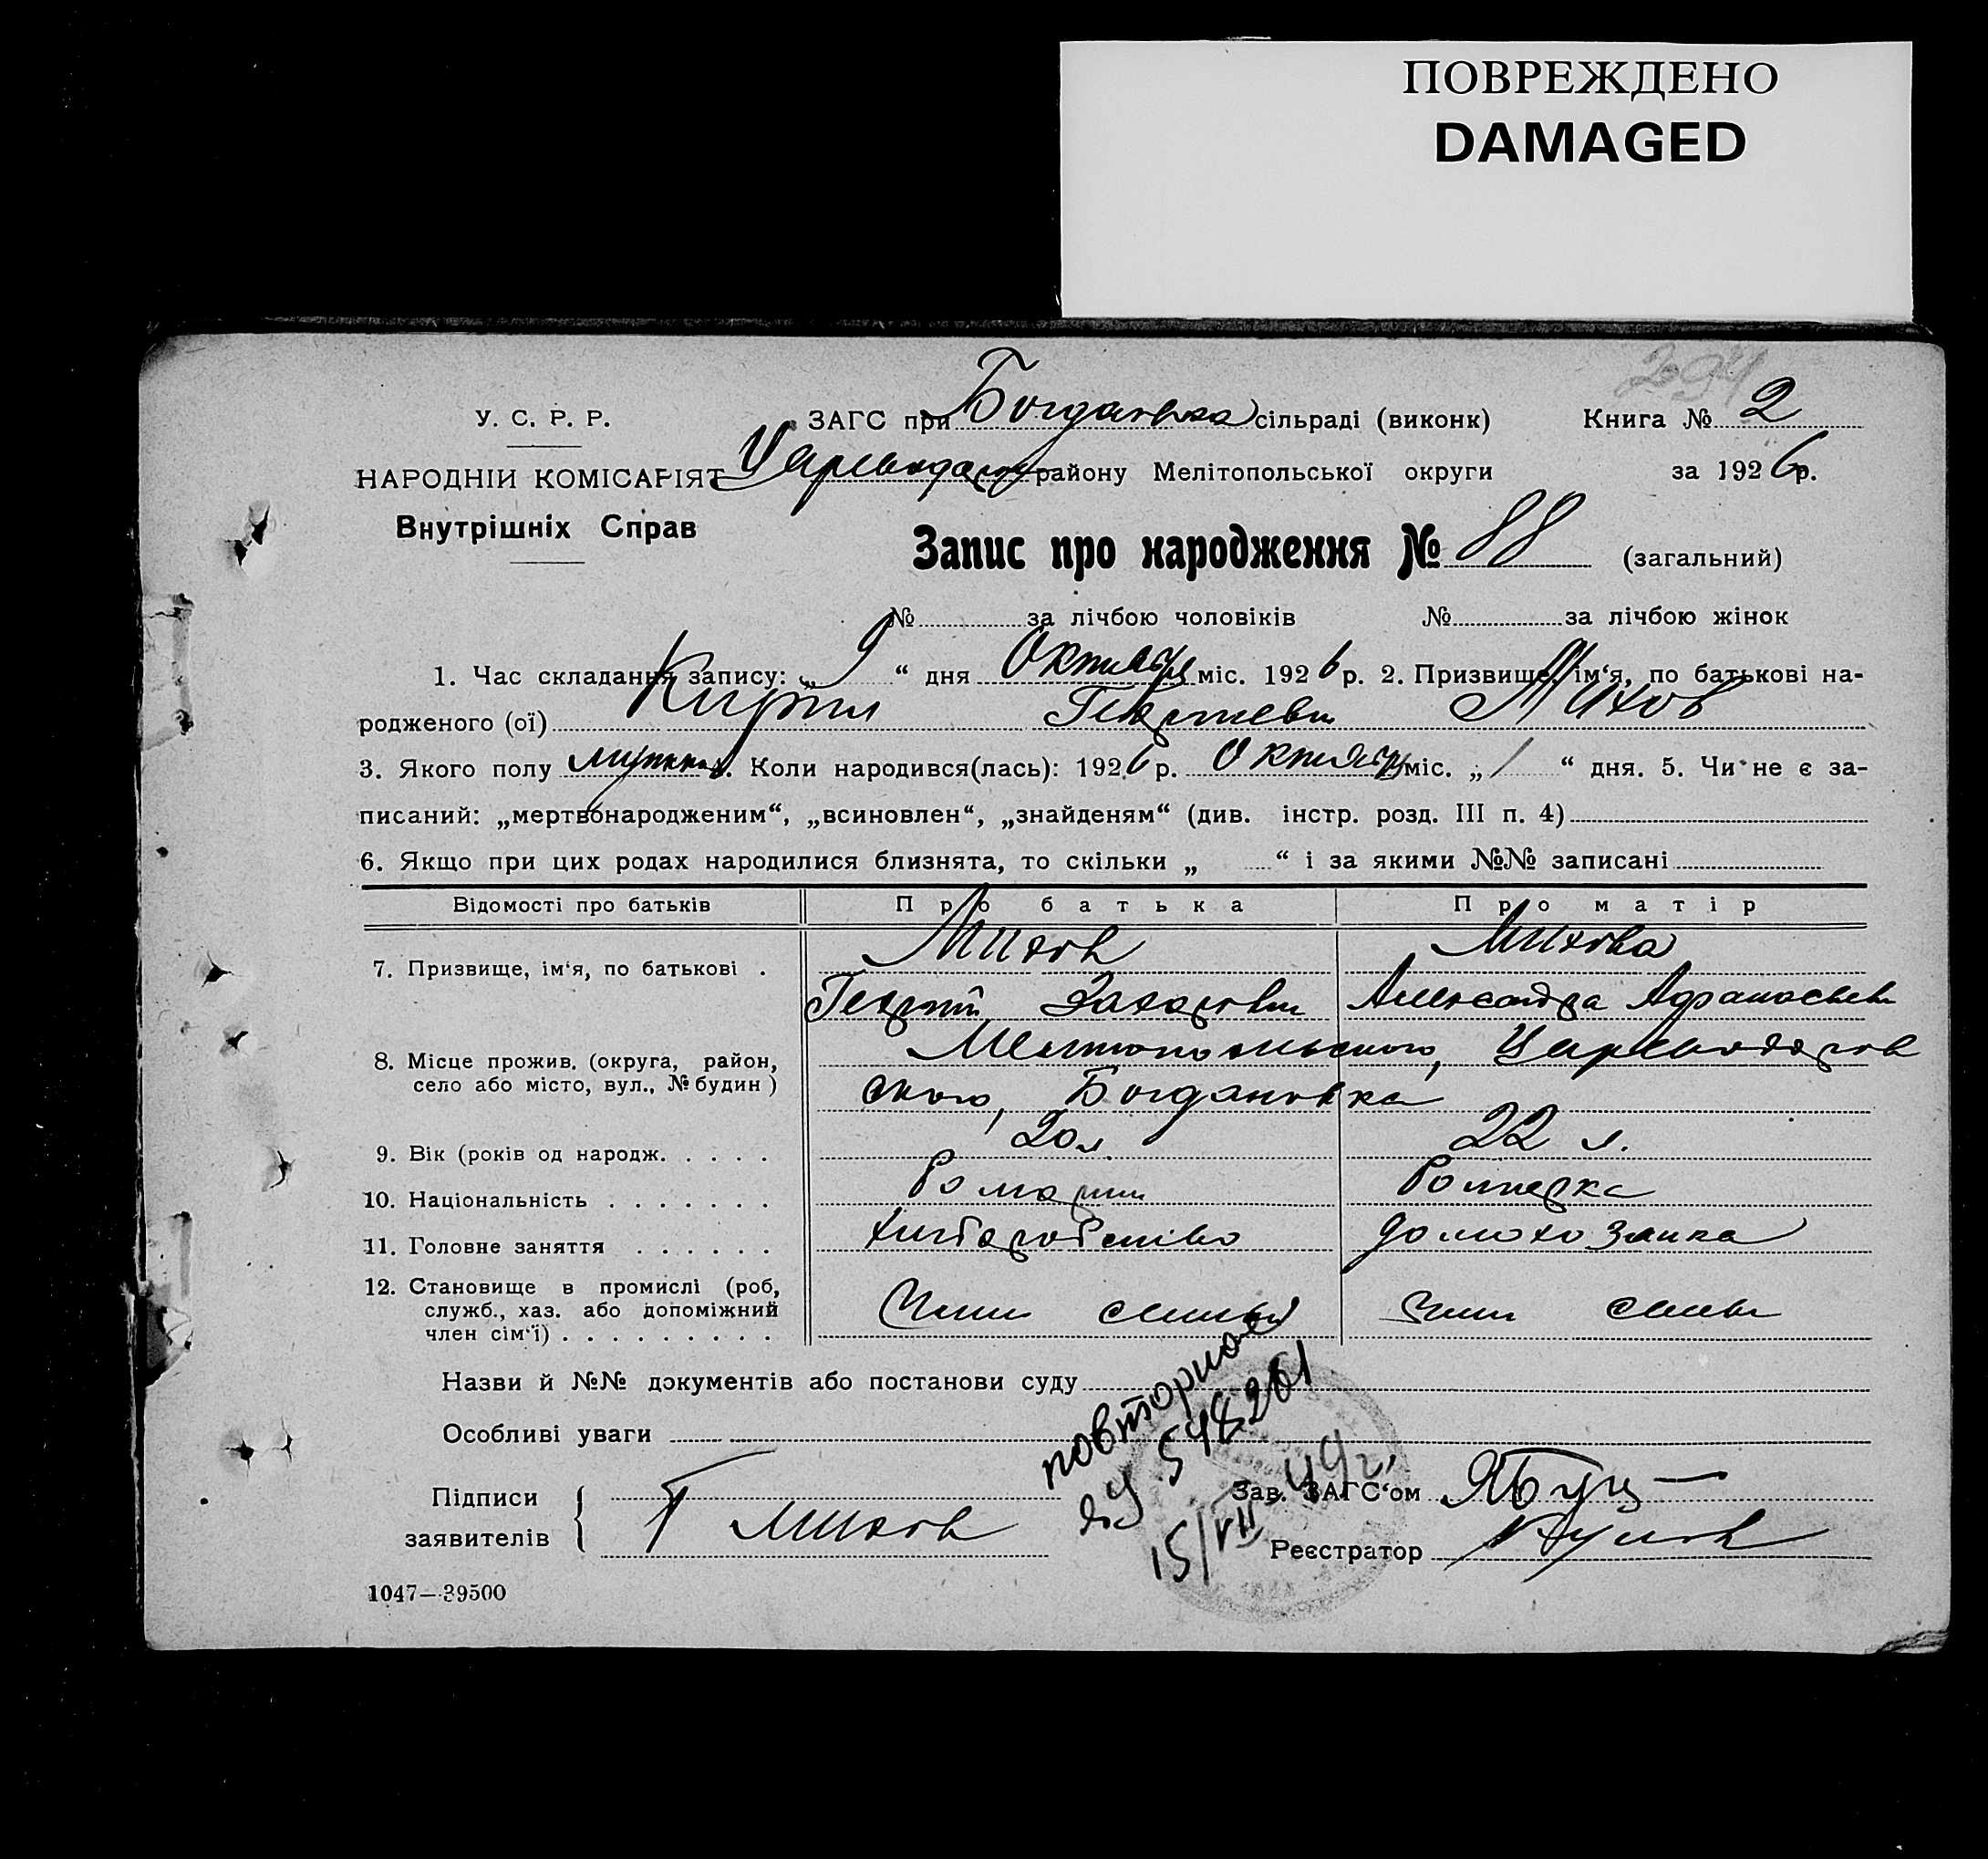 ПОВРЕЖДЕНО
DAMAGED
294
У. С. Р. Р.
ЗАГС при Богдановка сільраді (виконк)
Книга № 2
НАРОДНІЙ КОМІСАРІЯТ
району Мелітопольської округи
за 1926 р.
Внутрішніх Справ
Запис про народження № 88 (загальний)
№ за лічбою чоловіків № за лічбою жінок
1. Час складання запису: „ 9 “ дня Октября міс. 1926 р. 2. Призвище, ім‘я, по батькові на-
родженого (ої) Кирил Георгиевич Михов
3. Якого полу Коли народився(лась): 1926 р. Октября міс. „ 1 “ дня. 5. Чи не є за-
писаний: „мертвонародженим“, „всиновлен“, „знайденям“ (див. інстр. розд. III п. 4)
6. Якщо при цих родах народилися близнята, то скільки „ “ і за якими №№ записані
Відомості про батьків Про батька Про матір
7. Призвище, ім‘я, по батькові . Михов Михова
Георгий Захарович Александра Афанасьев
8. Місце прожив. (округа, район, село або місто, вул., № будин ) Мелитопольского, Цареводаров
ского, Богдановка
9. Вік (років од народж. . . . . 20 л. 22 л.
10. Національність . . . . . . .
11. Головне заняття . . . . . . хлібаробство домохозяика
12. Становище в промислі (роб, служб., хаз. або допоміжний член сім‘ї) . . . . . . . . .
Назви й №№ документів або постанови суду
Особливі уваги
повторное
548261
15/VII 44 г.
Підписи заявителів
Г Михов
Зав. ЗАГС‘ом
Реєстратор
1047—39500